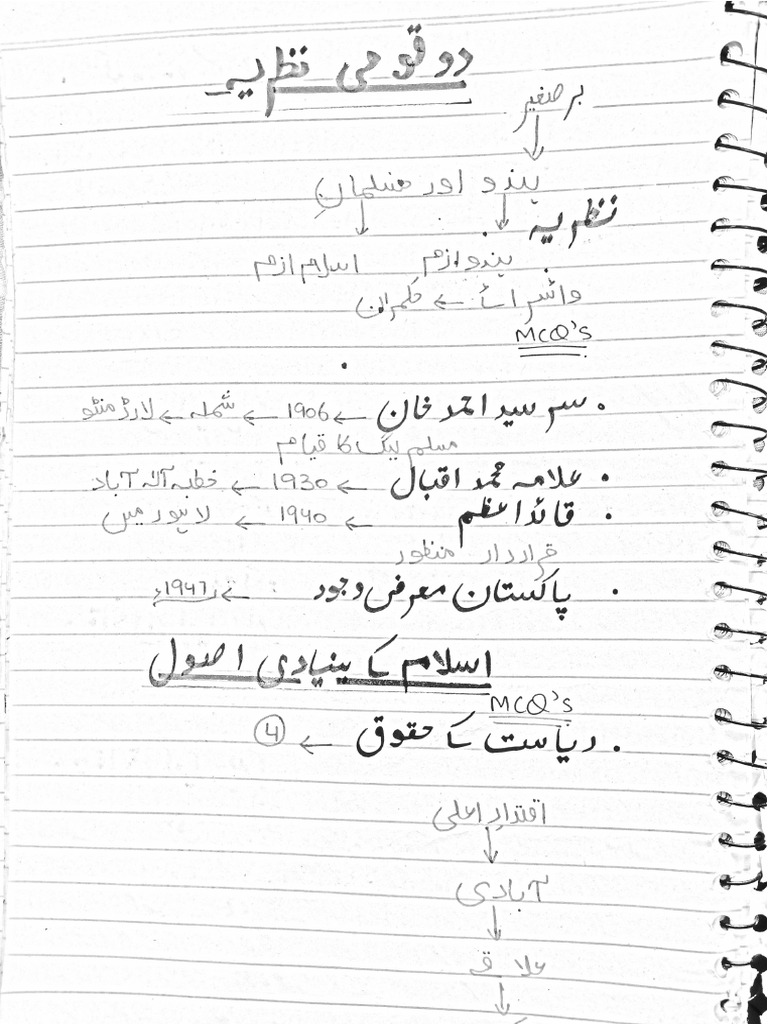 دو قومی نظریہ
برصغیر
↓
ہندو اور مسلمان
↓ ↓
نظریہ
ہندوازم اسلام ازم
وائسرائے ← حکمران
MCQ'S
. سر سید احمد خان ← 1906 ← شملہ ← لارڈ منٹو
مسلم لیگ کا قیام
. علامہ محمد اقبال ← 1930 ← خطبہ الہ آباد
. قائداعظم ← 1940 ← لاہور میں
قرارداد منظور
. پاکستان معرض وجود ← 1947ء
اسلام کے بنیادی اصول
MCQ'S
. ریاست کے حقوق ← 4
اقتدار اعلی
↓
آبادی
↓
علاقہ
↓